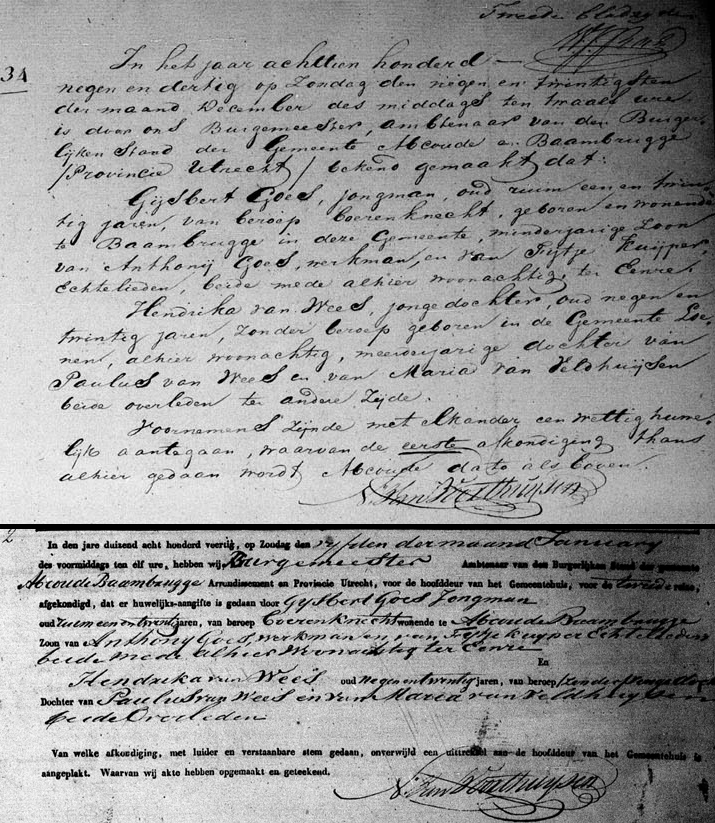 Tweede bladzyde
34
In het jaar achttien honderd —
negen en dertig op Zondag den negen en twintigsten
der maand December des middags ten twaalf ure
is door ons Burgemeester, ambtenaar van den Burger-
lijken Stand der Gemeente Abcoude en Baambrugge
/Provincie Utrecht/ bekend gemaakt dat:
Gijsbert Goes, jongman, oud ruim een en twin-
tig jaren, van beroep boerenknecht, geboren en wonende
te Baambrugge in deze Gemeente, minderjarige Zoon
van Anthonij Goes, werkman, en van Fijtje Kuijper,
Echtelieden, beide mede alhier woonachtig, ter Eenre.
Hendrika van Wees, jonge dochter, oud negen en
twintig jaren, zonder beroep geboren in de Gemeente Loe-
nen, alhier woonachtig, meerderjarige dochter van
Paulus van Wees en van Maria van Veldhuijsen
beide overleden ter andere Zijde.
Voornemens Zijnde met elkander een wettig huwe-
lijk aantegaan, waarvan de eerste afkondiging thans
alhier gedaan wordt Abcoude dato als boven.
2
In den jare duizend acht honderd veertig, op Zondag den vyfden der maand January
des voormiddags ten élf ure, hebben wij, Burgemeester Ambtenaar van den Burgerlijken Stand der gemeente
Abcoude Baambrugge Arrondissement en Provincie Utrecht, voor de hoofddeur van het Gemeentehuis, voor de tweede reize,
afgekondigd, dat er huwelijks-aangifte is gedaan door Gysbert Goes Jongman
oud ruim een en twintig jaren, van beroep Boerenknecht wonende te Abcoude Baambrugge
Zoon van Anthony Goes, werkman en van Fijtje Kuyper Echtelieden
beide mede alhier Woonachtig ter Eenre
En
Hendrika van Wees oud Negen en twintig jaren, van beroep zonder
Dochter van Paulus van Wees en van Maria van Veldhuysen
beide Overleden
Van welke afkondiging, met luider en verstaanbare stem gedaan, onverwijld een uittreksel aan de hoofddeur van het Gemeentehuis is
aangeplakt. Waarvan wij akte hebben opgemaakt en geteekend.